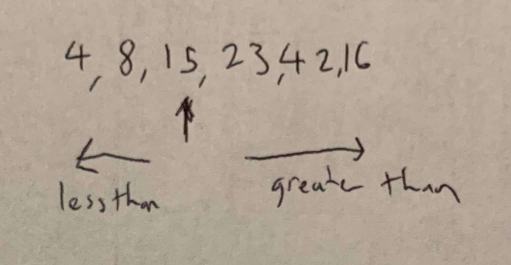 4, 8, 15, 23, 42, 16
less than
greater than